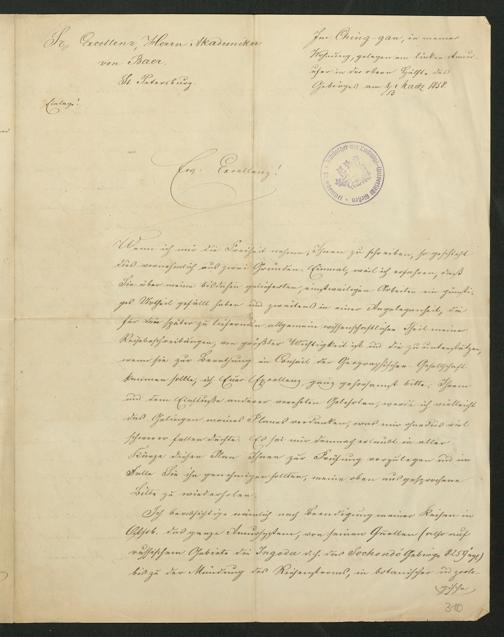 Sr. Excellenz, Herrn Akademiker
von Baer
St. Petersburg
Einlage!
Im Ching-gan, in meiner
Wohnung, gelegen am linken Amur-
ufer in der obern Hälfte des
Gebirges am 1858.
Ew. Excellenz!
Wenn ich mir die Freiheit nehme, Ihnen zu schreiben, so geschieht
dies vornehmlich aus zwei Gründen. Einmal, weil ich erfahren, daß
Sie über meine bisdahin gelieferten, einstweiligen Arbeiten ein günsti-
ges Urtheil gefällt haben und zweitens in einer Angelegenheit, die
für den später zu liefernden allgemein wissenschaftlichen Theil meiner
Reisebeschreibungen, von größter Wichtigkeit ist und die zu unterstützen,
wenn sie zur Berathung im Conseil der Geographischen Gesellschaft
kommen sollte, ich Eure Excellenz, ganz gehorsamst bitte. Ihnen
und dem Einflusse anderer verehrten Gelehrten, werde ich vielleicht
das Gelingen meines Planes verdanken, was mir ohnedies viel
schwerer fallen dürfte. Es sei mir demnach erlaubt in aller
Kürze diesen Plan Ihnen zur Prüfung vorzulegen und im
Falle Sie ihn genehmigen sollten, meine oben ausgesprochene
Bitte zu wiederholen.
Ich beabsichtige nämlich nach Beendigung meiner Reisen in
Ostsib. das ganze Amursystem, von seinen Quellen (also auf
russischem Gebiete die Ingoda d.h. das Sochondo Gebirge
bis zu der Mündung des Riesenstroms, in botanischer und zoolo-
gischer
310